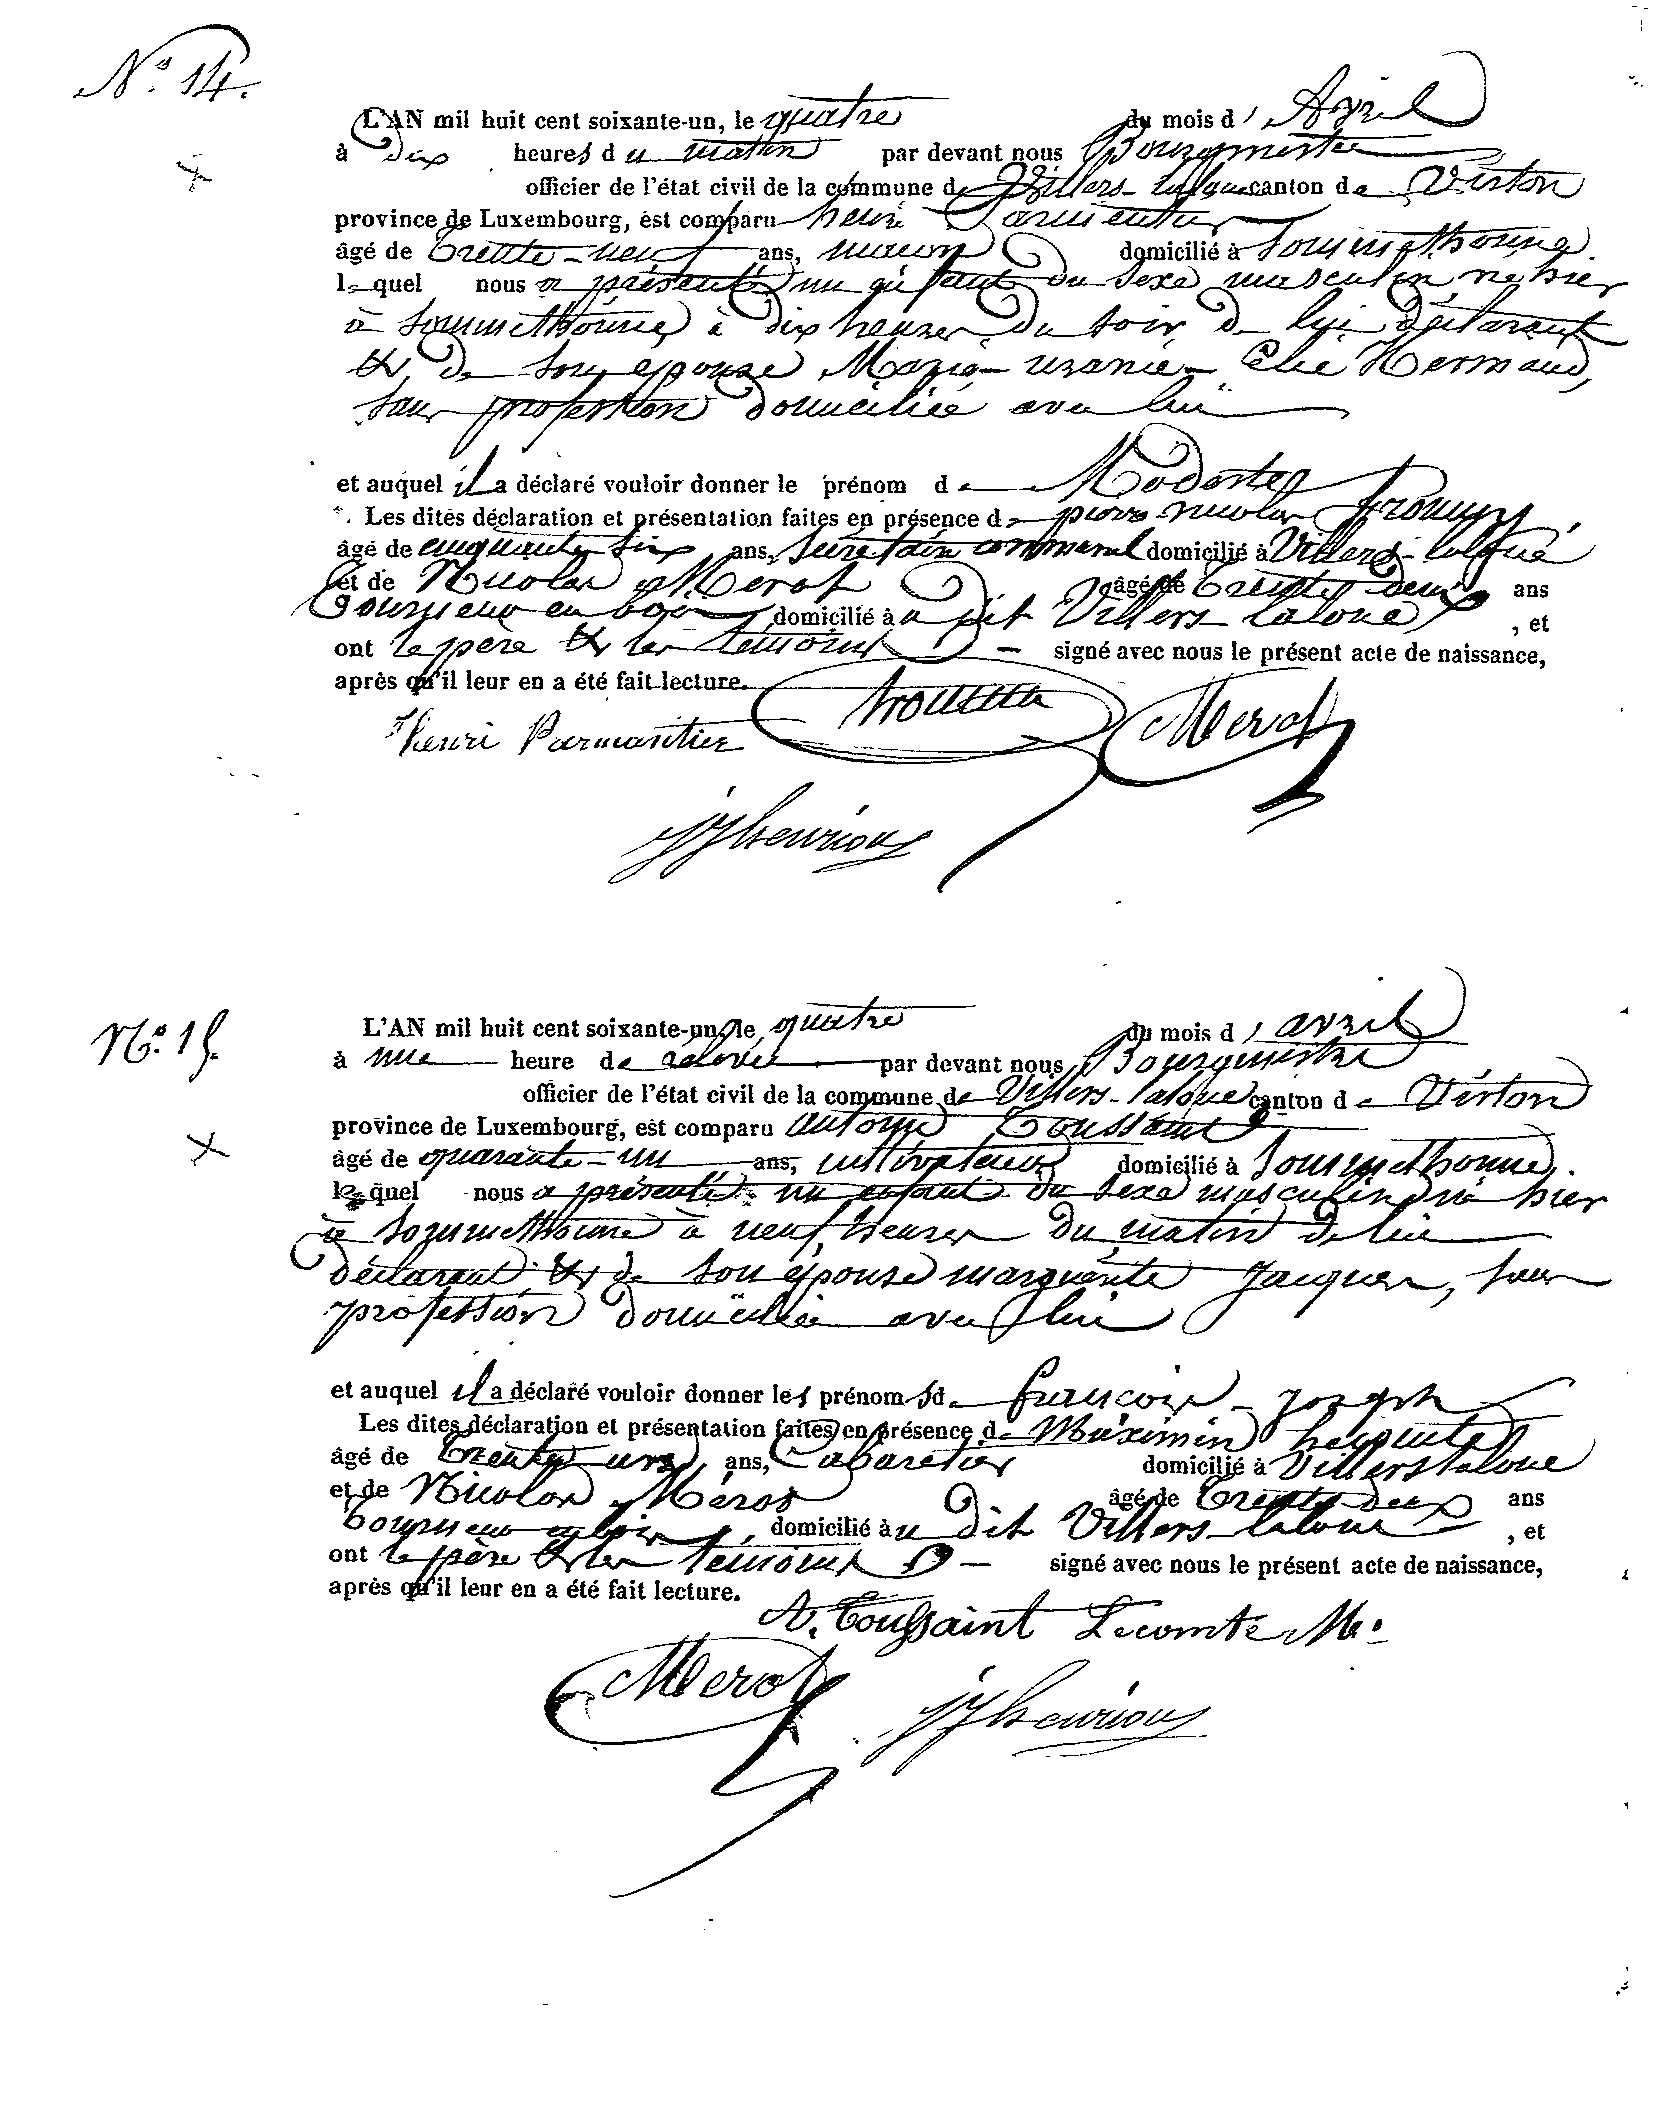 N° 14.
L'AN mil huit cent soixante-un, le quatre du mois d'Avril
à dix heures du matin par devant nous Bourgmestre
officier de l'état civil de la commune de Villers-laloue canton de Virton
province de Luxembourg, est comparu henri Parmentier
âgé de trente-neuf ans, maçon domicilié à Sommethonne.
lequel nous a présenté un enfant du sexe masculin, né hier
à Sommethonne à dix heures du soir de lui déclarant
& de son épouse Marie-uranie- Hermand,
sans profession domiciliée avec lui
et auquel il a déclaré vouloir donner le prénom de Modeste
Les dites déclaration et présentation faites en présence de pierre nicolas
âgé de cinquante six ans, Secrétaire communal domicilié à Villers-laloué
et de Nicolas Merot âgé de trente deux ans
tourneur en bois domicilié au dit Villers-laloue, et
ont le père & les témoins signé avec nous le présent acte de naissance,
après qu'il leur en a été fait lecture.
Henri Parmentier Merot
jjhenrion
N° 15.
L'AN mil huit cent soixante-un, le quatre du mois d'avril
à une heure de relevée par devant nous Bourgmestre
officier de l'état civil de la commune de Villers-laloue canton de Virton
province de Luxembourg, est comparu antoine Toussaint
âgé de quarante-un ans, cultivateur domicilié à Sommethonne.
lequel nous a présenté un enfant du sexe masculin né hier
à Sommethonne à neuf heures du matin de lui
déclarant & de son épouse marguerite jacques, sans
profession domiciliée avec lui
et auquel il a déclaré vouloir donner les prénoms de françois-joseph
Les dites déclaration et présentation faites en présence de Maximin
âgé de trente uns ans, Cabaretier domicilié à Villers laloue
et de Nicolas Merot âgé de trente deux ans
tourneur en bois, domicilié au dit Villers-laloue, et
ont le père & les témoins signé avec nous le présent acte de naissance,
après qu'il leur en a été fait lecture.
A. Toussaint Lecomte M.
Merot jjhenrion